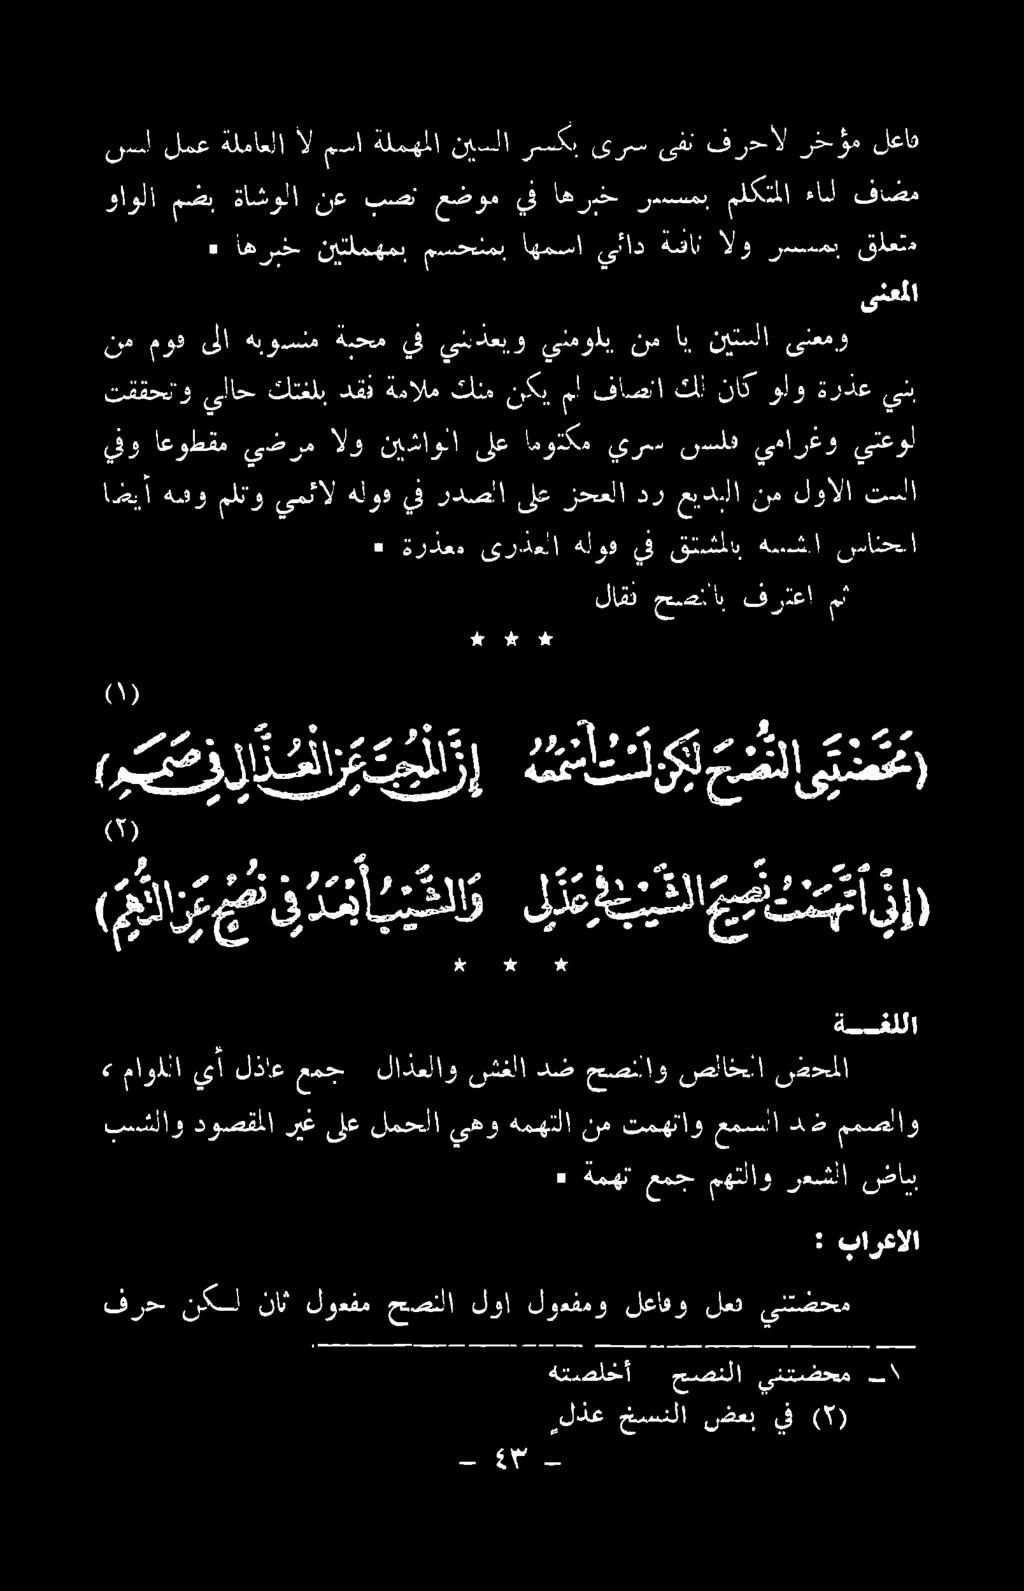 فاعل مؤخر لاحرف نفى سرى بكسر السين المهملة اسم لا العاملة عمل ليس
مضاف لياء المتكلم بمستتر خبرها في موضع نصب عن الوشاة بضم الواو
متعلق بمستتر ولا نافية دائي اسمها بمنحسم بمهملتين خبرها ▪
المعنى
ومعنى البيتين يا من يلومني ويعذبني في محبة منسوبه الى قوم من
بني عذرة ولو كان لك انصاف لم يكن منك ملامة فقد بلغتك حالي وتحققت
لوعتي وغرامي فليس سري مكتوما على الواشين ولا مرضي مقطوعا وفي
البيت الاول من البديع رد العجز على الصدر في قوله لائمي وتلم وفيه أيضا
الجناس الشبيه بالمشتق في قوله العذرى معذرة ▪
ثم اعترف بالنصح فقال
★ ★ ★
(١)
(مَحَّضْتَنِي النُّصْحَ لٰكِنْ لَسْتُ أَسْمَعُهُ إِنَّ الْمُحِبَّ عَنِ الْعُذَّالِ فِي صَمَمِ)
(٢)
(إِنِّي اتَّهَمْتُ نَصِيحَ الشَّيْبِ فِي عَذَلِي وَالشَّيْبُ أَبْعَدُ فِي نُصْحٍ عَنِ التُّهَمِ)
★ ★ ★
اللغــة
المحض الخالص والنصح ضد الغش والعذال جمع عاذل أي اللوام ،
والصمم ضد السمع واتهمت من التهمه وهي الحمل على غير المقصود والشيب
بياض الشعر والتهم جمع تهمة ▪
الاعراب :
محضتني فعل وفاعل ومفعول اول النصح مفعول ثان لـكن حرف
١ـ محضتني النصح أخلصته
(٢) في بعض النسخ عذلٍ
ـ ٤٣ ـ